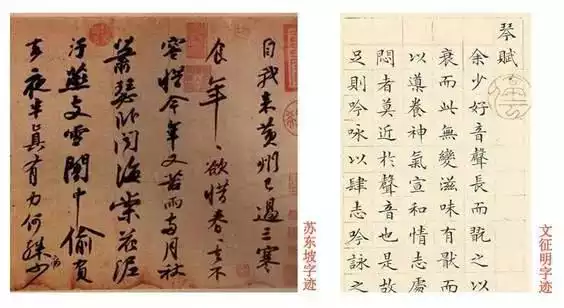 自我来黄州已過三寒
食年〻欲惜春〻去不
容惜今年又苦雨两月秋
蕭瑟卧聞海棠花泥
汙燕支雪闇中偷負
去夜半真有力何殊病少
苏东坡字迹
琴賦
余少好音聲長而翫之以
衰而此無變滋味有猒而
以導養神氣宣和情志處
悶者莫近於聲音也是故
足則吟詠以肆志吟詠之
文征明字迹